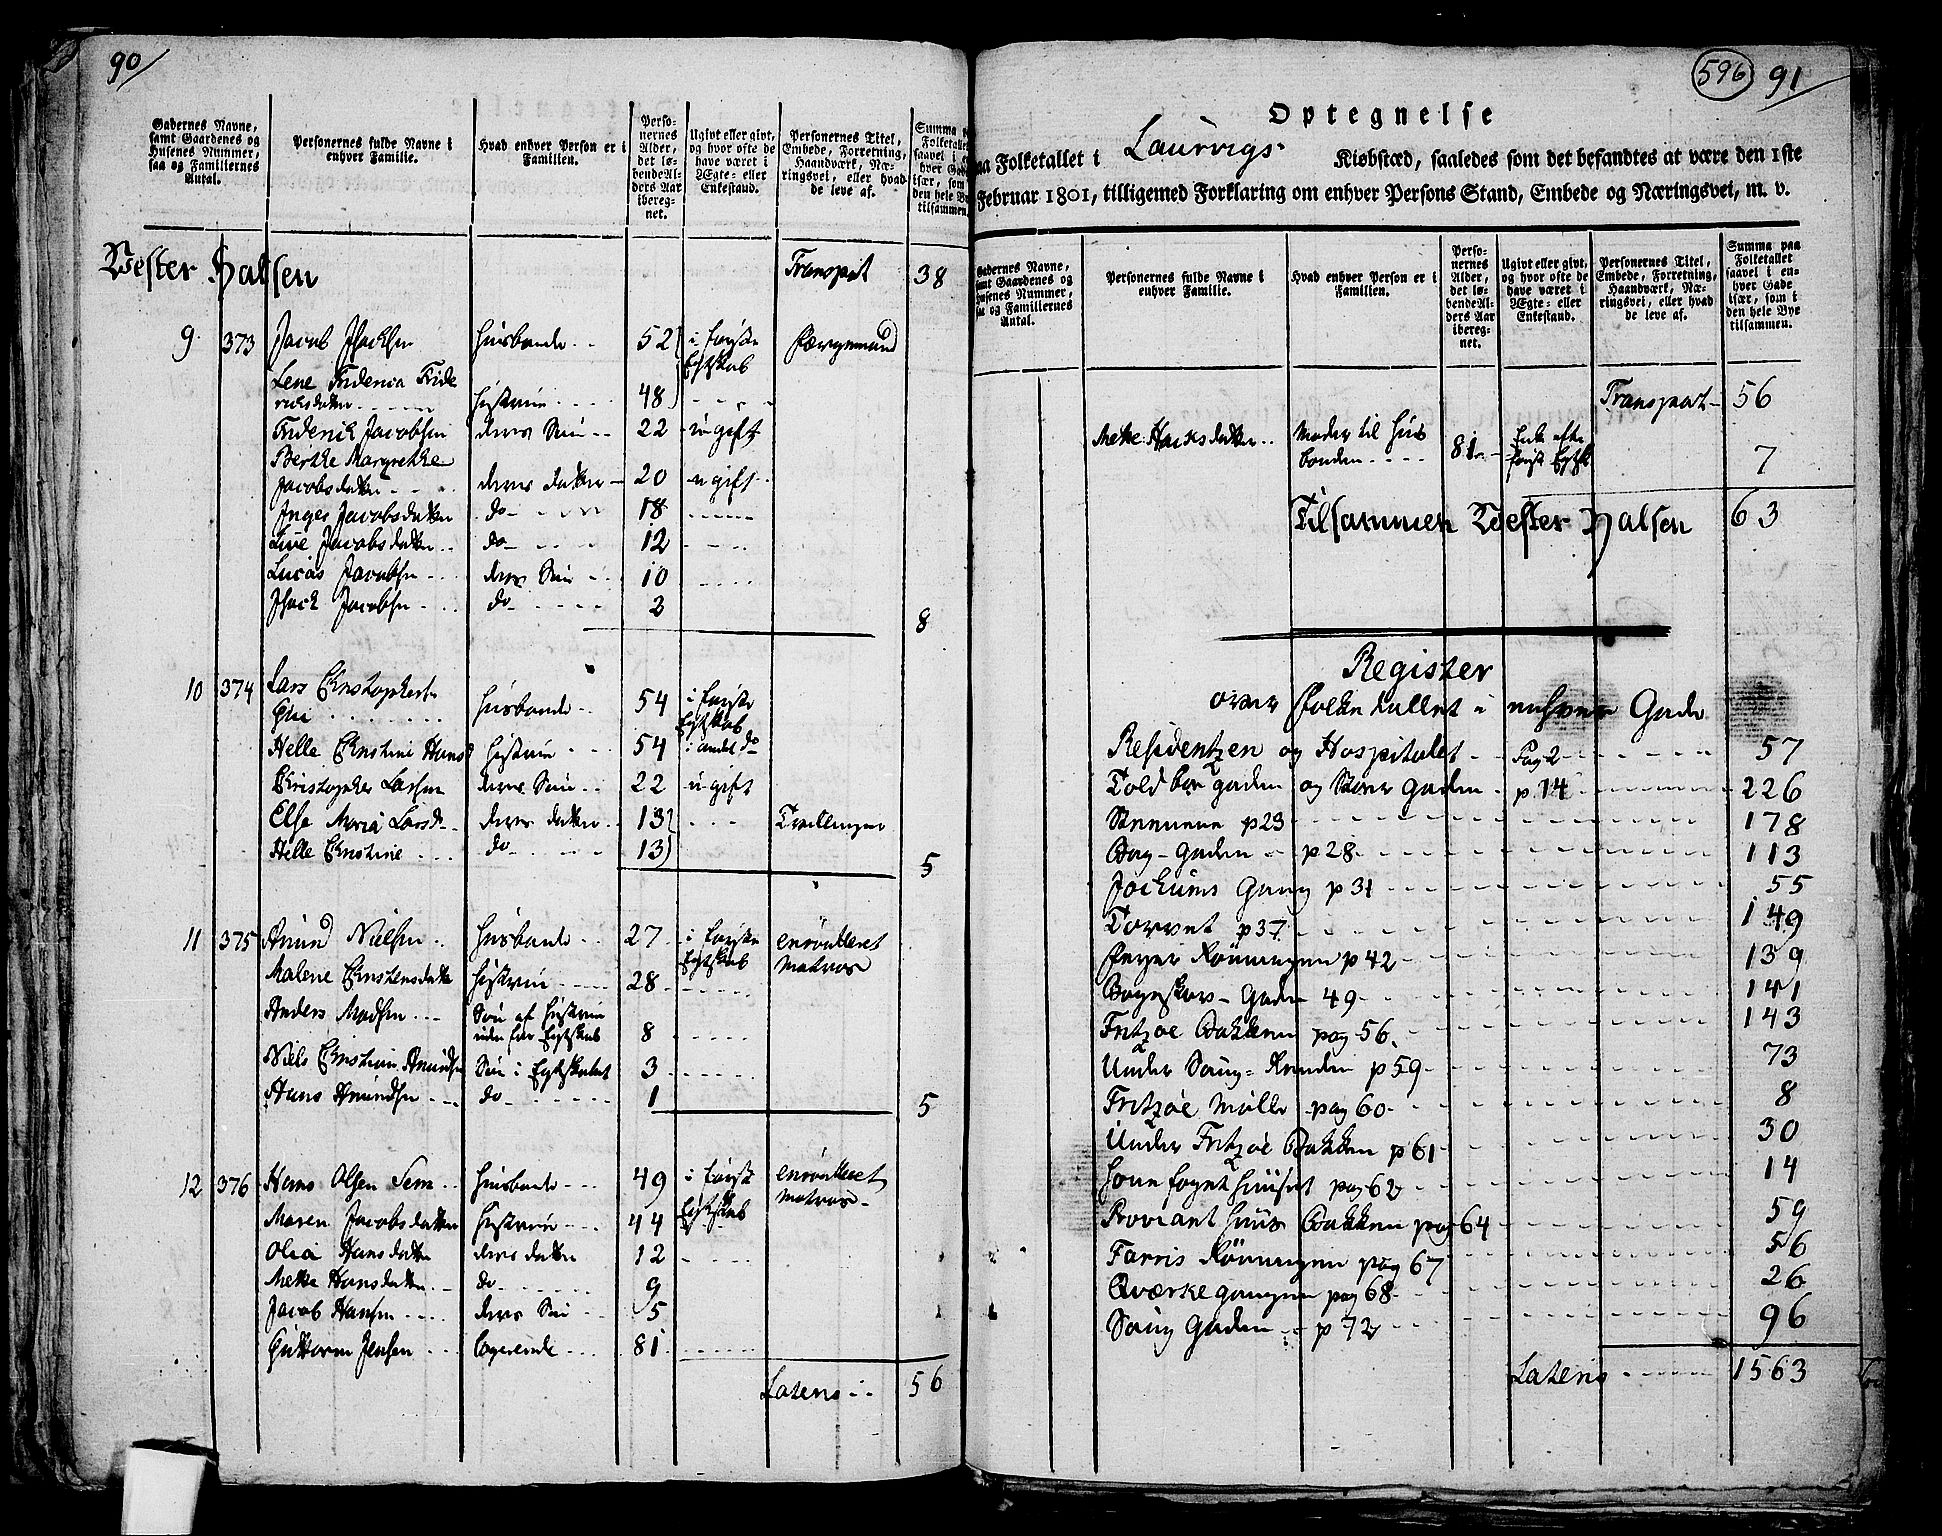 90
Gadernes Navne, samt Gaardenes og Husenes Nummer, saa og Familiernes Antal.
Personernes fulde Navne i enhver Familie.
Hvad enhver Person er i Familien.
Personernes Alder, det løbende Alders Aar iberegnet.
Ugivt eller givt, og hvor ofte de have været i Ægte- eller Enkestand.
Personernes Titel, Embede, Forretning, Haandværk, Næringsvei, eller hvad de leve af.
Vester Halsen Transport 38
9 373 Jacob Jsachsen Huusbonde 52 i første Egtskab Færgemand
Lene Friderica Fride
richsdatter Hustrue 48
Friderich Jacobsen deres Søn 22 ugift
Berthe Margrethe
Jacobsdatter deres datter 20 ugift
Inger Jacobsdatter do 18
Live Jacobsdatter do 12
Lucas Jacobsen deres Søn 10
Jsach Jacobsen do 2
8
10 374 Lars Christophersen
Huusbonde 54 i første Egtskab
Helle Christine Hansd Hustrue 54 i andet do
Christopher Larsen deres Søn 22 ugift
Else Maria Larsd 13 deres datter Tvillinger
Helle Christine do 13
5
11 375 Amund Nielsen Huusbonde 27 i første Egtskab enroulleret Matros
Malene Christensdatter Hustrue 28
Anders Madsen Søn af Hustruen uden for Egtskab 8
Niels Christian Amundsen Søn i Egtskabet 3
Hans Amundsen do 1
5
12 376 Hans Olsen Sem Huusbonde 49 i første Egtskab enroulleret Matros
Maren Jacobsdatter Hustrue 44
Olea Hansdatter deres datter 12
Mette Hansdatter do 9
Jacob Hansen deres Søn 5
Guttorm Jensen Logerende 81
Lateris 56
596 91
Optegnelse
paa Folketallet i Laurvigs Kiøbstæd, saaledes som det befandtes at være den 1ste
Februar 1801, tilligemed Forklaring om enhver Persons Stand, Embede og Næringsvei, m. v.
Gadernes Navne, samt Gaardenes og Husenes Nummer, saa og Familiernes Antal.
Personernes fulde Navne i enhver Familie.
Hvad enhver Person er i Familien.
Personernes Alder, det løbende Alders Aar iberegnet.
Ugivt eller givt, og hvor ofte de have været i Ægte- eller Enkestand.
Personernes Titel, Embede, Forretning, Haandværk, Næringsvei, eller hvad de leve af.
Summa paa Folketallet saavel i enhver Gade især, som i den hele Bye tilsammen.
Transport 56
Mette Hansdatter Moder til Huusbonden 81 Enke efter første Egtsk
7
Tilsammen Vester Halsen 63
Register
over Folke tallet i enhver Gade
Residentzen og Hospitalet Pag 2 57
Toldboe gaden og Store Gaden p 14 226
Steenene p 23 178
Bag-Gaden p 28 113
Jochums Gang p 31 55
Torvet p 37 149
Feyer Rønningen p 42 139
Bøgeskovs-Gaden 49 141
Fritzøe Bakken pag 56 143
Under Saug-Renden p 59 73
Fritzøe Mølle pag 60 8
Under Fritzøe Bakken p 61 30
Hovefoget Huuset pag 62 14
Proviant Huus Bakken pag 64 59
Farris Rønningen pag 67 56
Qværke gangen pag 68 26
Saug Gaden p 72 96
Lateris 1563